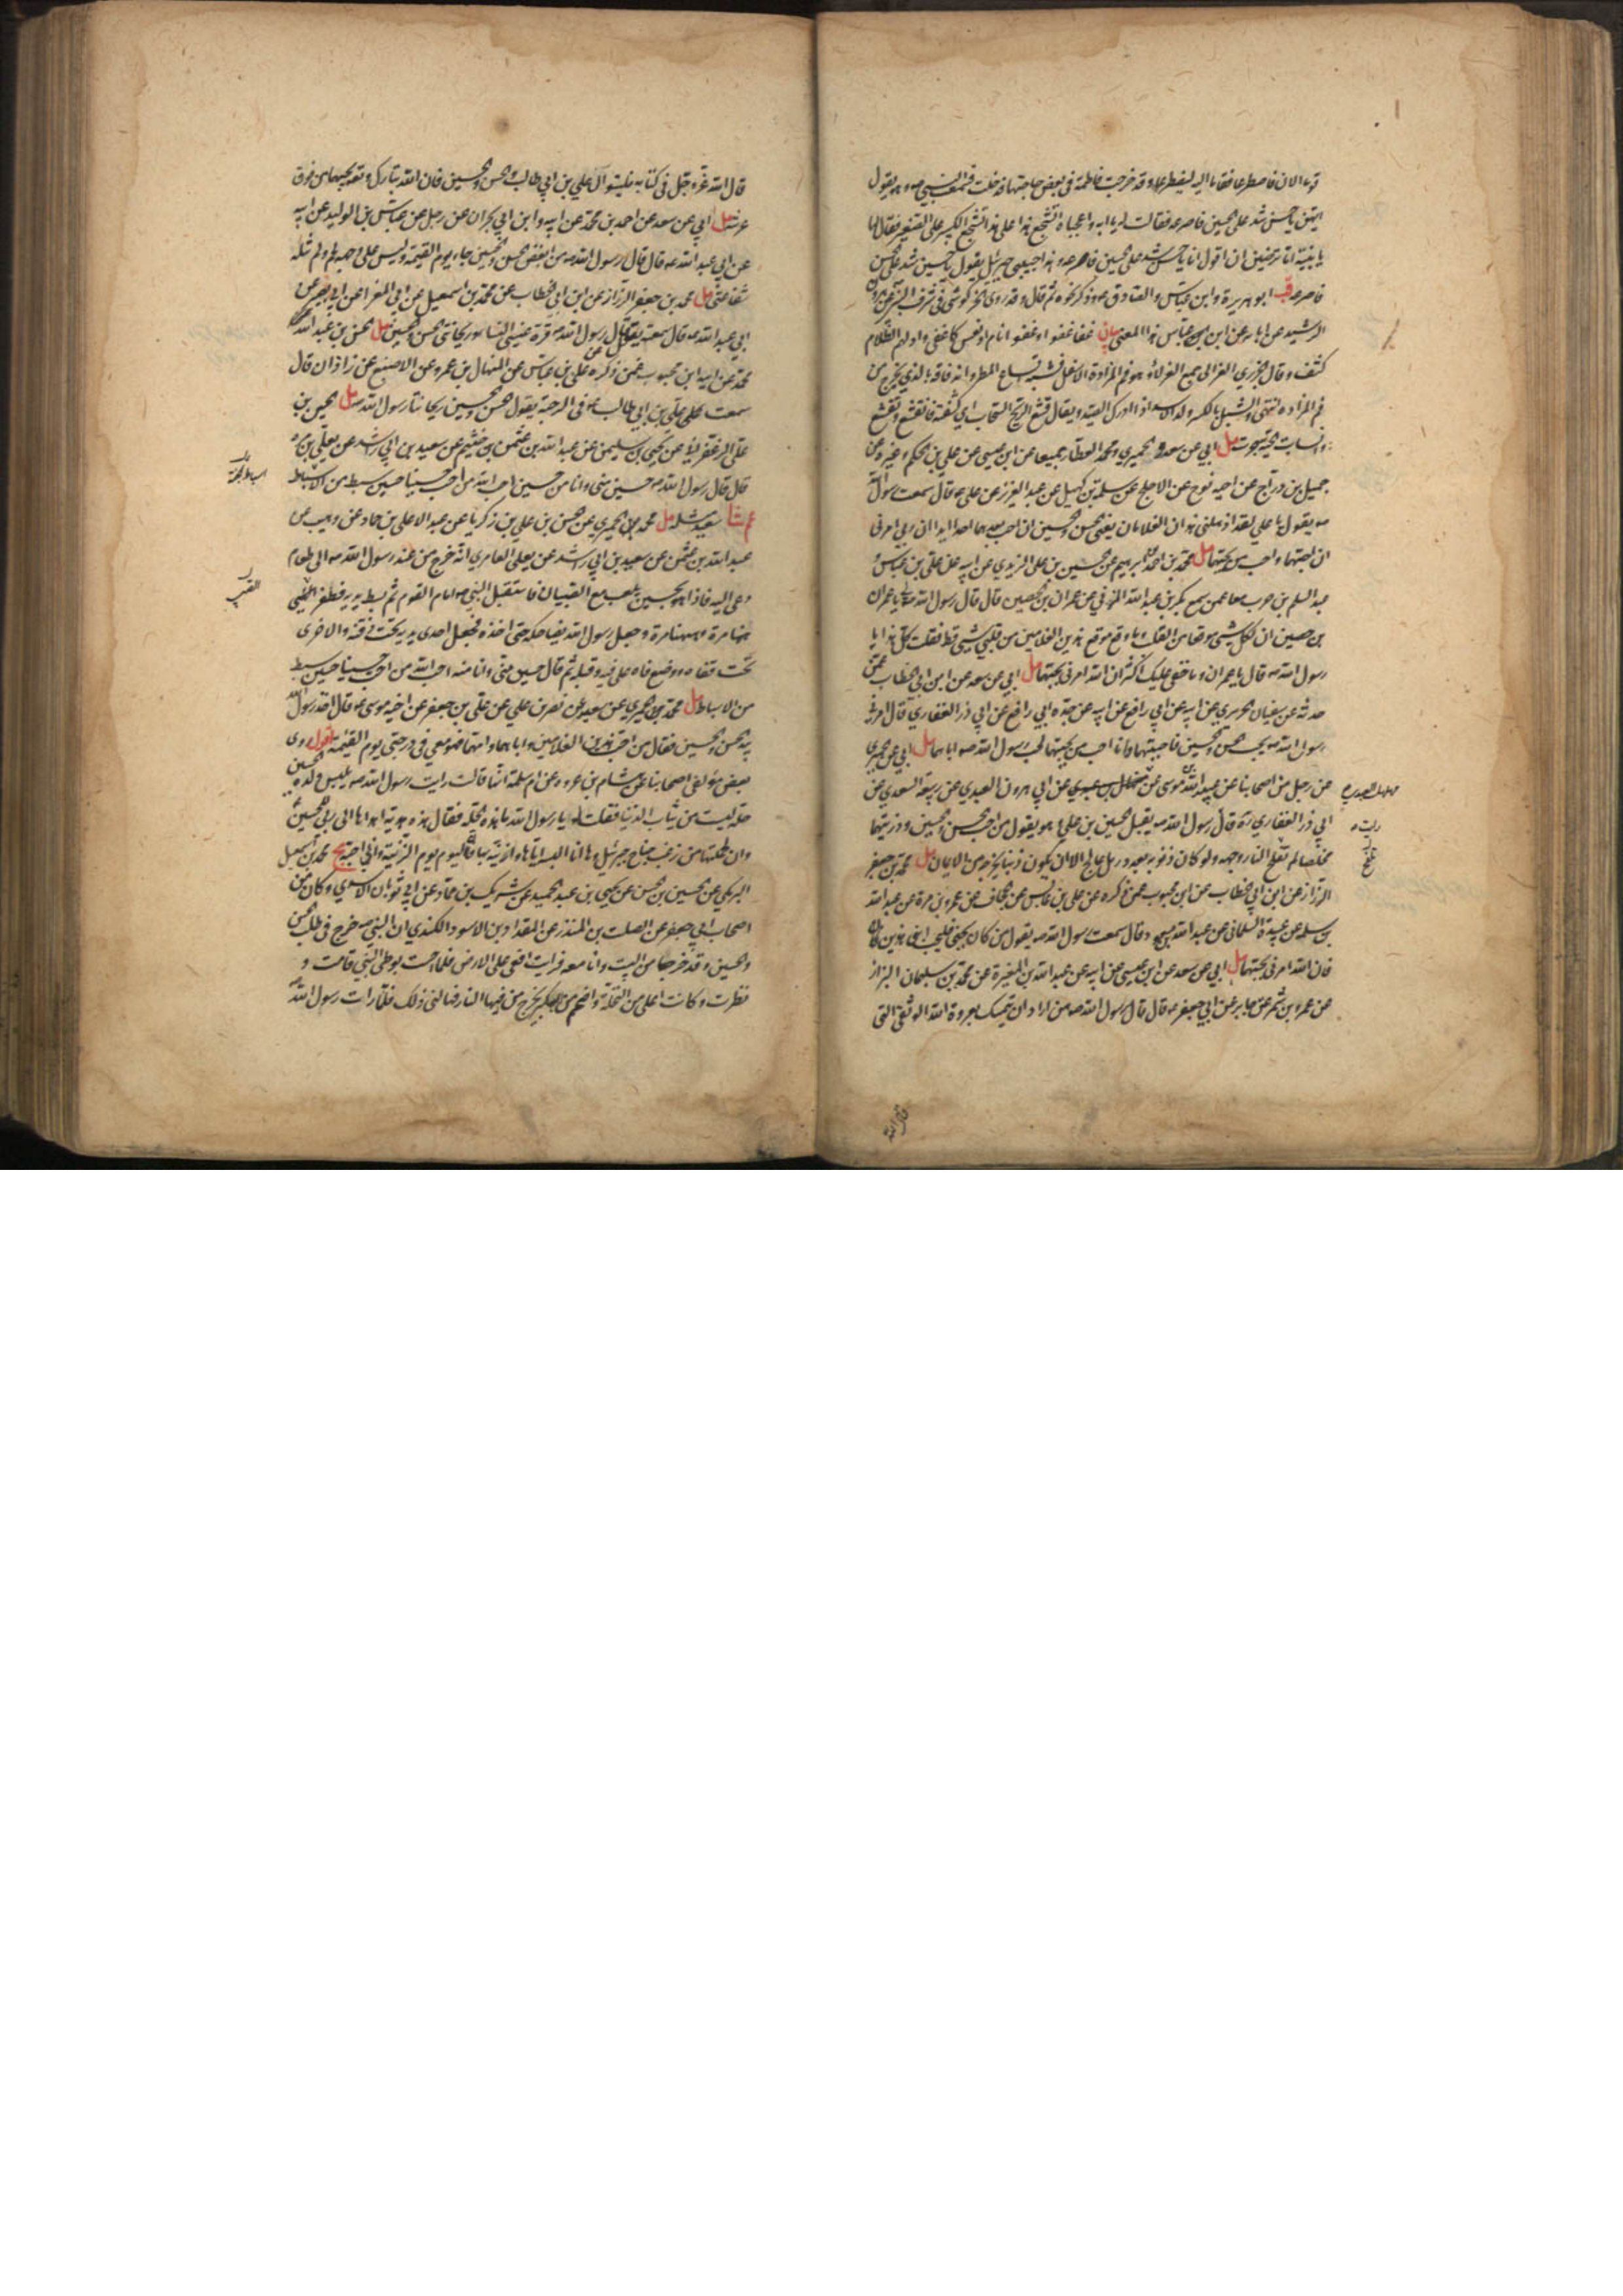 قوما الان فاصطرعا فقاما اليه ليصطرعا وقد خرجت فاطمة في بعض حاجتها فدخلت فسمعت النبي صه وهو يقول
ايهن يا حسن شد على الحسين فاصرعه فقالت له يا ابه واعجباه اتشجع هذا على هذا اتشجع الكبير على الصغير فقال لها
يا بنية اما ترضين ان اقول انا يا حسن شد على الحسين فاصرعه وهذا حبيبي جبرئيل يقول يا حسين شد على الحسن
فاصرعه قب ابو هريرة وابن عباس والصادق عه وذكر نحوه ثم قال وقد روى الخركوشي في شرف النبي عن هرون
الرشيد عن ابائه عن ابن عباس هذا المعنى بيان غفا غفوا او غفوا نام او نعس كاغفى وادلهم الظلام
كثف وقال الجزري العزالي جمع العزلاء وهو فم المزادة الاسفل فشبه اتساع المطر واندفاقه بالذي يخرج من
فم المزادة انتهى والشبل بالكسر ولد الاسد اذا ادرك الصيد ويقال قشع الريح السحاب اي كشفته فانقشع وتقشع
وانسابت الحية جرت مل ابي عن سعد والحميري ومحمد العطار جميعا عن ابن عيسى عن علي بن الحكم وغيره عن
جميل بن دراج عن اخيه نوح عن الاجلح عن سلمة بن كهيل عن عبد العزيز عن علي عه قال سمعت رسول الله
صه يقول يا علي لقد اذهلني هذان الغلامان يعني الحسن والحسين ان احب بعدهما احدا ابدا ان ربي امرني
ان احبهما واحب من يحبهما مل محمد بن احمد بن ابرهيم عن الحسين بن علي الزيدي عن ابيه عن علي بن عباس و
عبد السلم بن حرب معا عمن سمع بكر بن عبد الله المزني عن عمران بن الحصين قال قال رسول الله صه يا عمران
بن حصين ان لكل شيء موقعا من القلب وما وقع موقع هذين الغلامين من قلبي شيء قط فقلت كل هذا يا
رسول الله صه قال يا عمران وما خفي عليك اكثر ان الله امرني بحبهما مل ابي عن سعد عن ابن ابي الخطاب عمن
حدثه عن سفيان الحريري عن ابيه عن ابي رافع عن ابيه عن جده ابي رافع عن ابي ذر الغفاري قال امرني
رسول الله صه بحب الحسن والحسين فاحببتهما وانا احب من يحبهما لحب رسول الله صه اياهما مل ابي عن الحميري
عن رجل من اصحابنا عن عبيد الله بن موسى عن مهلهل العبدي عن ابي هرون العبدي عن ربيعة السعدي عن
ابي ذر الغفاري ره قال رسول الله صه يقبل الحسين بن علي وهو يقول من احب الحسن والحسين وذريتهما
مخلصا لم تلفح النار وجهه ولو كان ذنوبه بعدد رمل عالج الا ان يكون ذنبا يخرجه من الايمان مل محمد بن جعفر
الرزاز عن ابن ابي الخطاب عن ابن محبوب عمن ذكره عن علي بن عابس عن الحجاف عن عمرو بن مرة عن عبد الله
بن سلمة عن عبيدة السلماني عن عبد الله بن مسعود قال سمعت رسول الله صه يقول من كان يحبني فليحب ابني هذين
فان الله امرني بحبهما مل ابي عن سعد عن ابن عيسى عن ابيه عن عبد الله بن المغيرة عن محمد بن سليمان البزاز
عن عمرو بن شمر عن جابر عن ابي جعفر عه قال قال رسول الله صه من اراد ان يتمسك بعروة الله الوثقى التي
قال الله
قال الله عز وجل في كتابه فليتوال علي بن ابي طالب والحسن والحسين فان الله تبارك وتعه يحبهما من فوق
عرشه مل ابي عن سعد عن احمد بن محمد عن ابيه وابن ابي نجران عن رجل عن عباس بن الوليد عن ابيه
عن ابي عبد الله عه قال قال رسول الله صه من ابغض الحسن والحسين جاء يوم القيمة وليس على وجهه لحم ولم تنله
شفاعتي مل محمد بن جعفر الرزاز عن ابن ابي الخطاب عن محمد بن اسمعيل عن ابي المغرا عن ابي بصير عن
ابي عبد الله عه قال سمعته يقول قال رسول الله صه قرة عيني النساء وريحانتي الحسن والحسين مل الحسن بن عبد الله بن
محمد عن ابيه ابن محبوب عمن ذكره عن علي بن عباس عن المنهال بن عمرو عن الاصبغ عن زاذان قال
سمعت علي بن ابي طالب عه في الرحبة يقول الحسن والحسين ريحانتا رسول الله صه مل الحسين بن
علي الزعفراني عن يحيى بن سليمن عن عبد الله بن عثمن بن خثيم عن سعيد بن ابي راشد عن يعلى بن مرة
قال قال رسول الله صه حسين مني وانا من حسين احب الله من احب حسينا حسين سبط من الاسباط
عم شا سعيد مثله مل محمد الحميري عن الحسن بن علي بن زكريا عن عبد الاعلى بن حماد عن وهيب عن
عبد الله بن عثمن عن سعيد بن ابي راشد عن يعلى العامري انه خرج من عند رسول الله صه الى طعام
دعي اليه فاذا هو بحسين يلعب مع الصبيان فاستقبل النبي صه امام القوم ثم بسط يديه فطفر الصبي
ههنا مرة وههنا مرة وجعل رسول الله يضاحكه حتى اخذه فجعل احدى يديه تحت ذقنه والاخرى
تحت قفاه ووضع فاه على فيه وقبله ثم قال حسين مني وانا منه احب الله من احب حسينا حسين سبط
من الاسباط مل محمد الحميري عن سعيد عن نصر بن علي عن علي بن جعفر عن اخيه موسى عه قال اخذ رسول الله
بيد الحسن والحسين فقال من احب هذين الغلامين واباهما وامهما فهو معي في درجتي يوم القيمة اقول روى
بعض مؤلفي اصحابنا عن هشام بن عروه عن ام سلمة انها قالت رايت رسول الله صه يلبس ولده الحسين
حلة ليست من ثياب الدنيا فقلت له يا رسول الله ما هذه الحلة فقال هذه هدية اهداها الي ربي للحسين
وان لحمتها من زغب جناح جبرئيل وها انا البسه اياها وازينه بها فان اليوم يوم الزينة واني احبه يج محمد بن اسمعيل
البرمكي عن الحسين بن الحسن عن يحيى بن عبد الحميد عن شريك بن حماد عن ابي ثوبان الاسدي وكان من
اصحاب ابي جعفر عن الصلت بن المنذر عن المقداد بن الاسود الكندي ان النبي صه خرج في طلب الحسن
والحسين وقد خرجا من البيت وانا معه فرايت افعى على الارض فلما احست بوطئ النبي قامت و
نظرت وكانت اعلى من النخلة واضخم من البكر يخرج من فيها النار فهالني ذلك فلما رات رسول الله